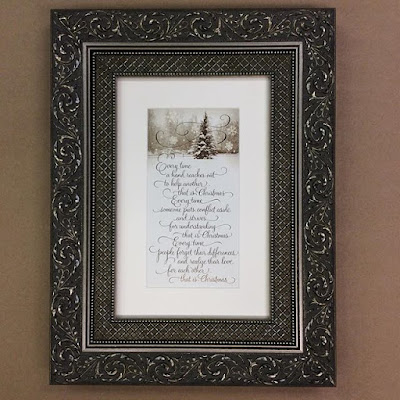 Every time
a hand reaches out
to help another
that is Christmas
Every time
someone puts conflict aside
and strives
for understanding
that is Christmas
Every time
people forget their differences
and realize their love
for each other
that is Christmas